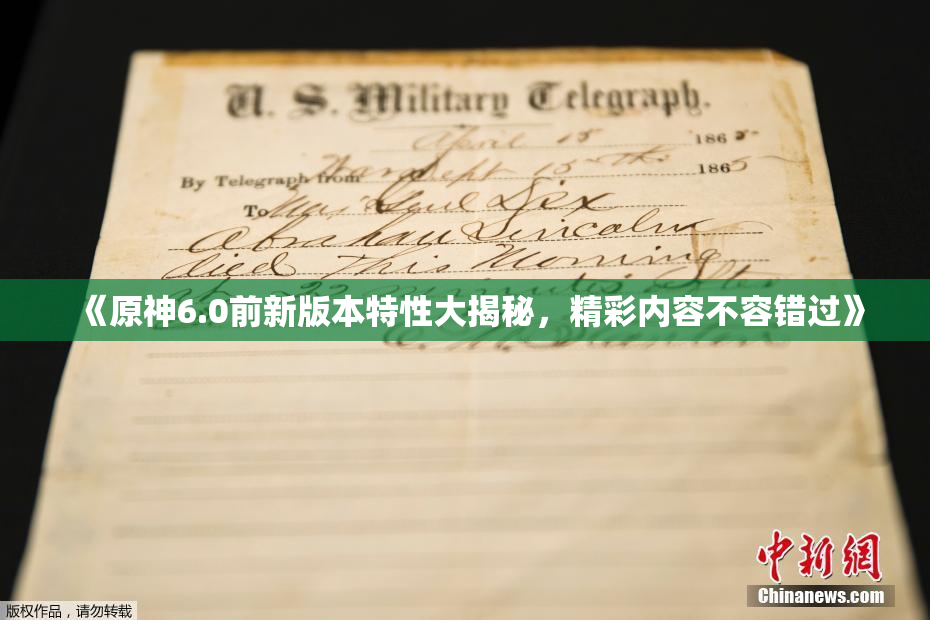 U. S. Military Telegraph.
April 15 1865
By Telegraph from War Dept 15th 1865
To Maj Genl Dix
Abraham Lincoln
died This Morning
《原神6.0前新版本特性大揭秘，精彩内容不容错过》
中新网
Chinanews.com
版权作品，请勿转载